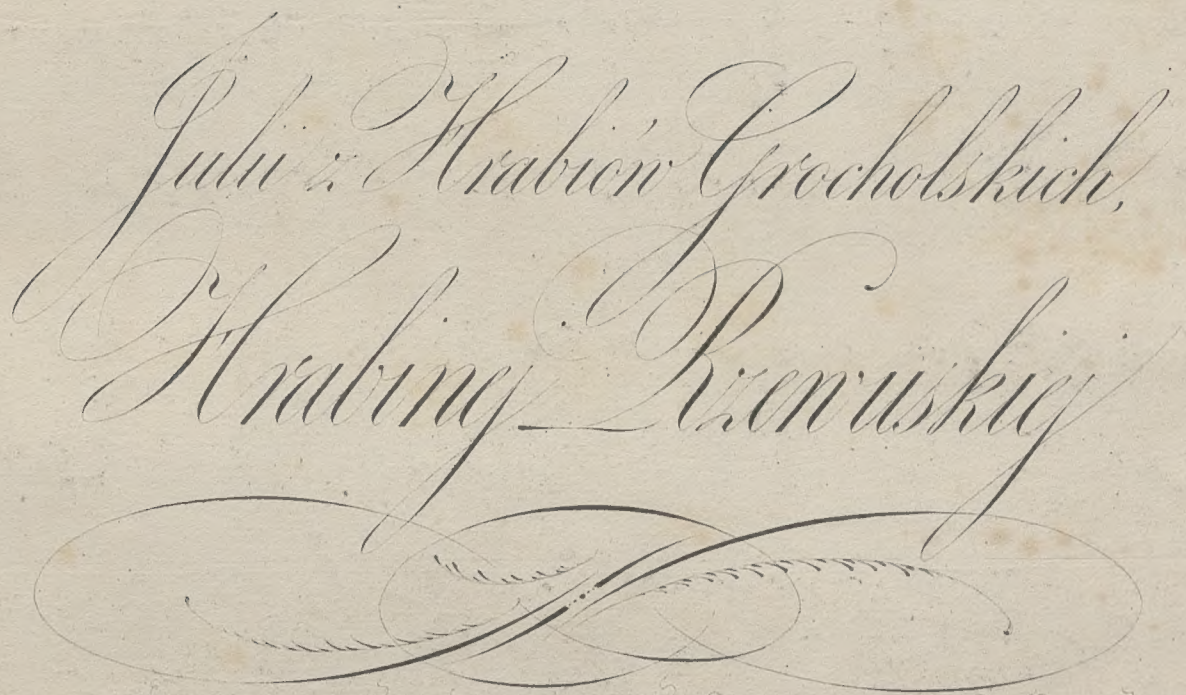 Julii z Hrabiów Grocholskich,
Hrabinej Rzewuskiej